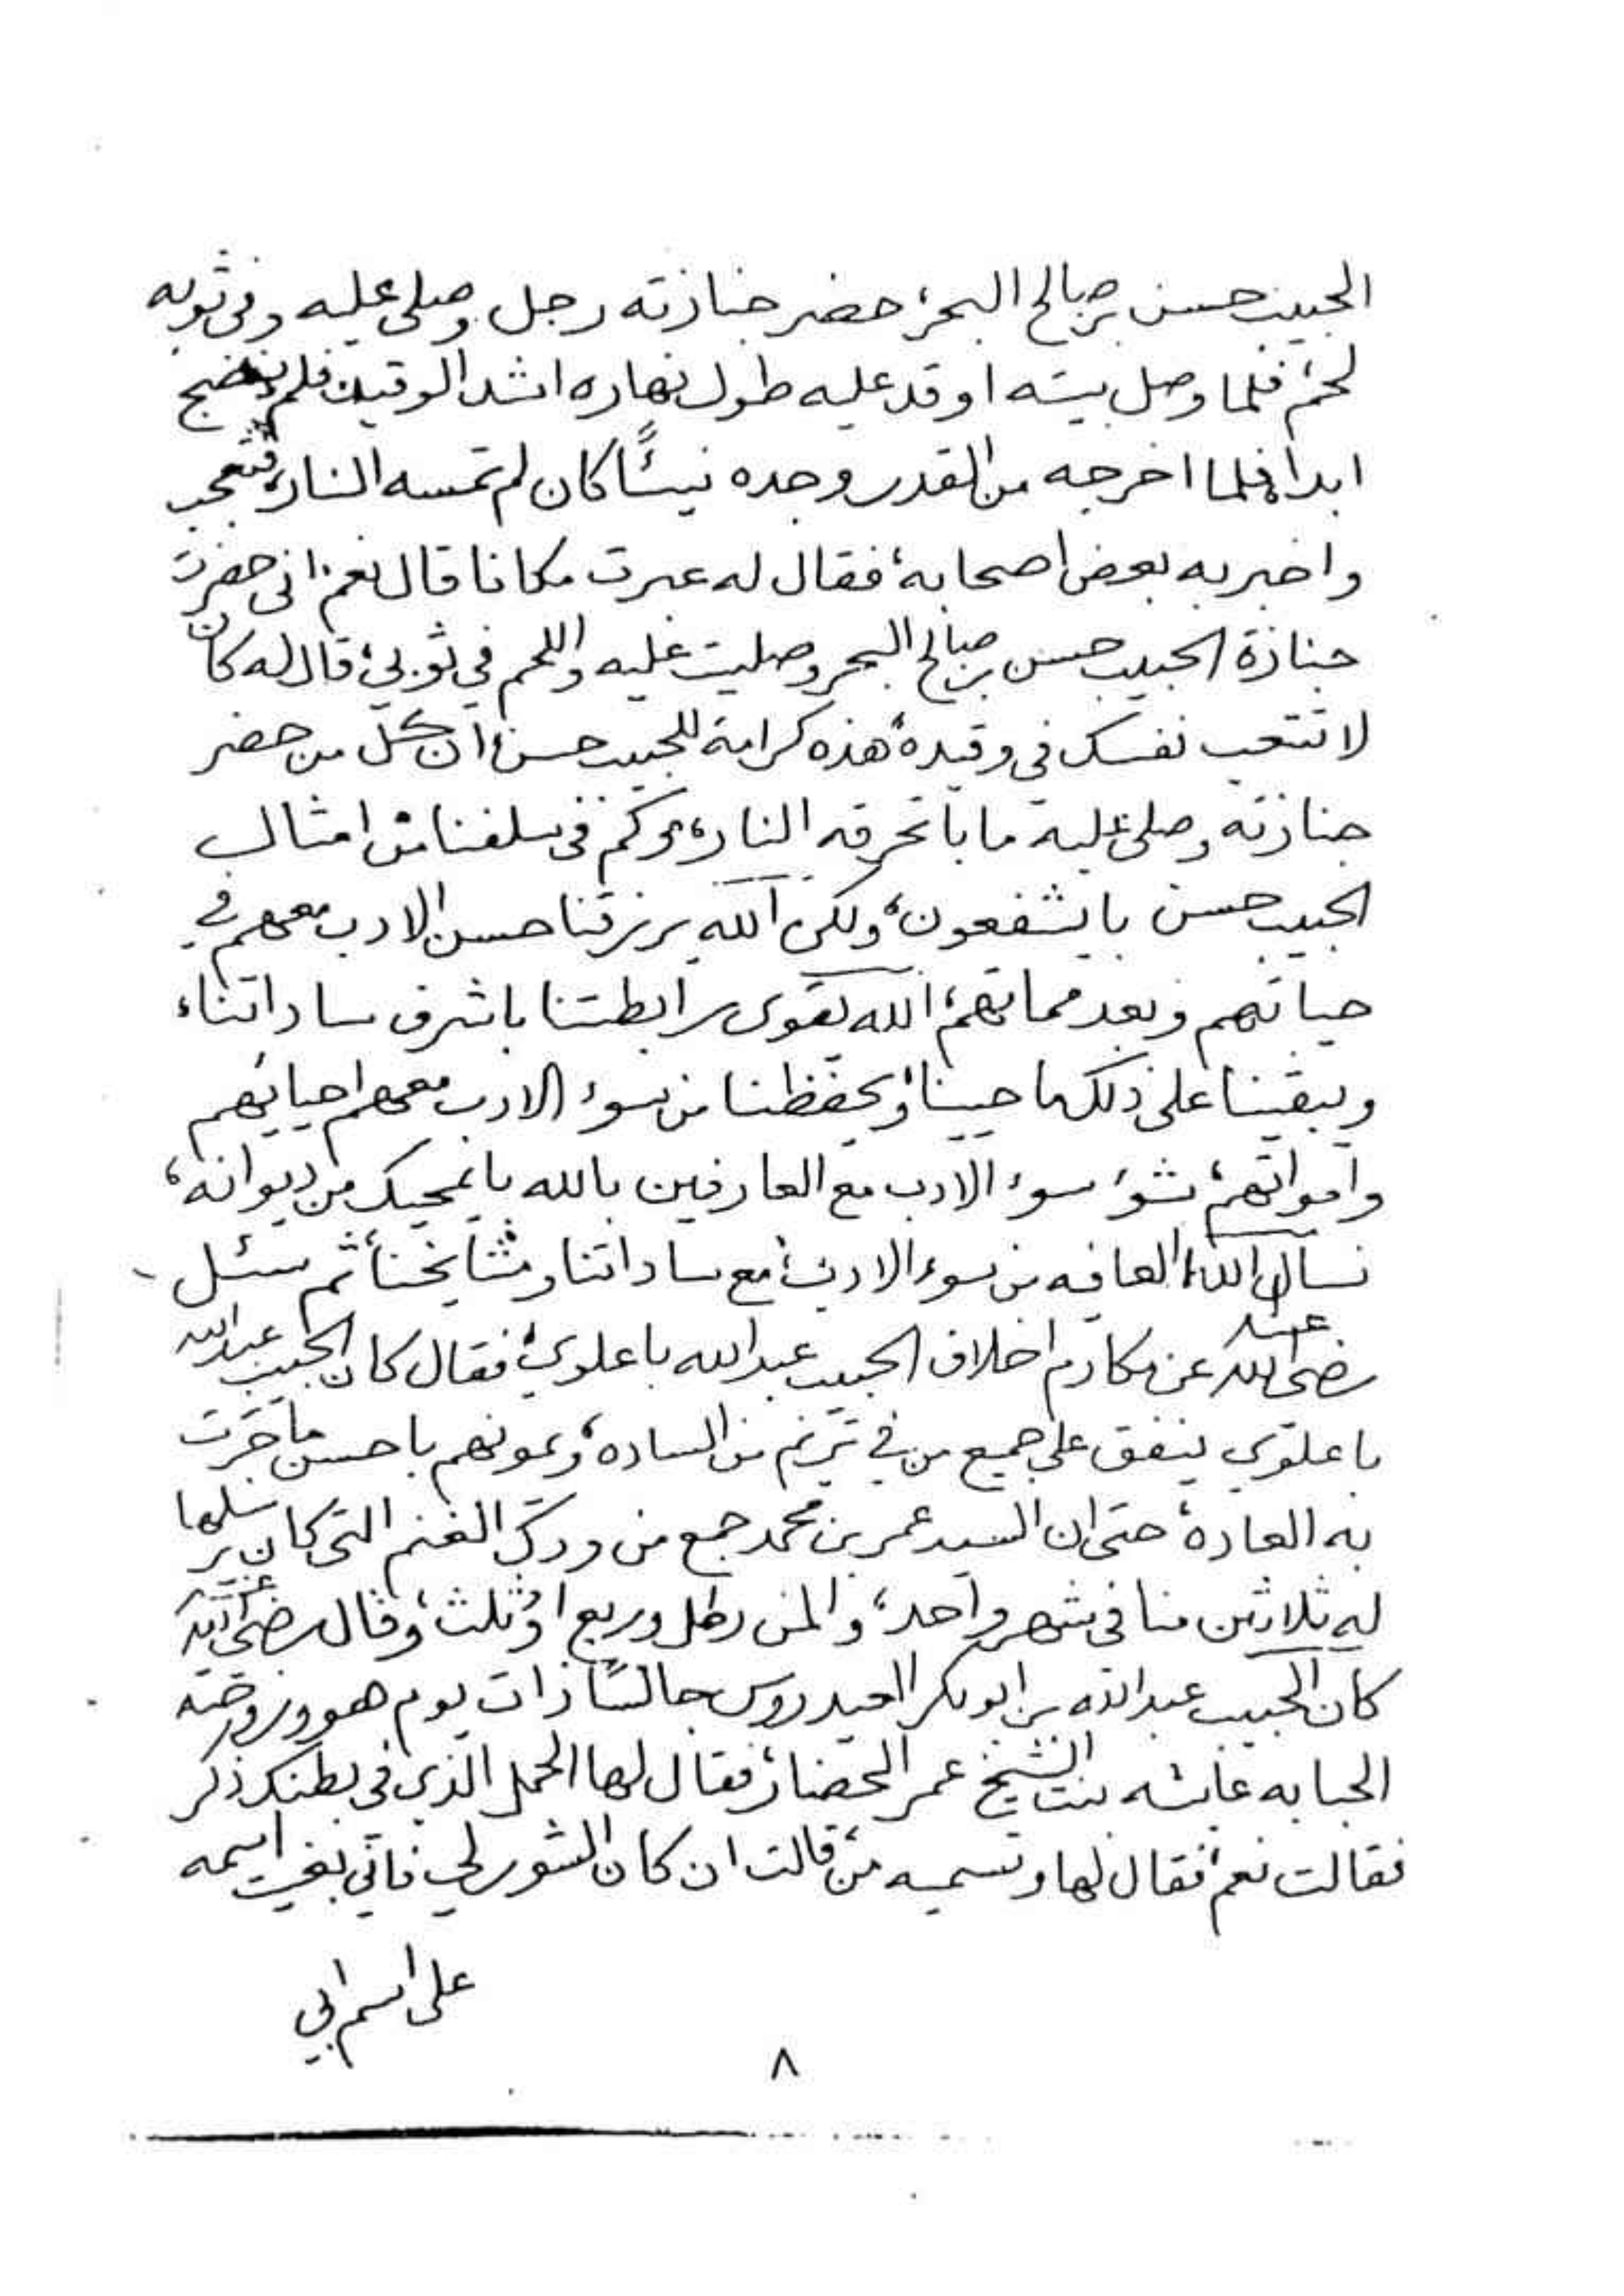 الحبيب حسن بن صالح البحر، حضر جنازته رجل وصلى عليه وفي ثوبه
لحم، فلما وصل بيته اوقد عليه طول نهاره اشد الوقيد، فلم ينضج
ابدا، فلما اخرجه من القدر وجده نيئًا كان لم تمسه النار، فتعجب
واخبر به بعض اصحابه، فقال له عبرت مكانا قال نعم، انى حضرت
جنازة الحبيب حسن بن صالح البحر وصليت عليه واللحم في ثوبي، قال له كان
لا تتعب نفسك في وقيده، هذه كرامة للحبيب حسن، ان كل من حضر
جنازته وصلى عليه ما باتحرقه النار، وكم في سلفنا من امثال
الحبيب حسن بايشفعون، ولكن الله يرزقنا حسن الادب معهم في
حياتهم وبعد مماتهم، الله يقوى رابطتنا باشرف ساداتنا،
ويبقينا على ذلك ما حيينا، ويحفظنا من سوء الادب معهم احيائهم
وامواتهم، شؤ سوء الادب مع العارفين بالله يا يمحيك من ديوانه،
نسال الله العافيه من سوء الادب، مع ساداتنا ومشايخنا، ثم سئل
رضي الله عنه عن مكارم اخلاق الحبيب عبدالله باعلوي، فقال كان الحبيب عبدالله
باعلوي ينفق على جميع من في تريم من الساده، ويمونهم باحسن ما جرت
به العاده، حتى ان السيد عمر بن محمد جمع من ودك الغنم التى كان يرسلها
له ثلاثين منا في شهر واحد، والمن رطل وربع او ثلث، وقال رضي الله عنه
كان الحبيب عبدالله بن ابوبكر العيدروس جالسًا ذات يوم هو وزوجته
الحبابه عائشه بنت الشيخ عمر المحضار، فقال لها الحمل الذي في بطنك ذكر
فقالت نعم، فقال لها وتسميه من، قالت ان كان الشور لي فاني بغيت اسمه
على اسم ابي
٨